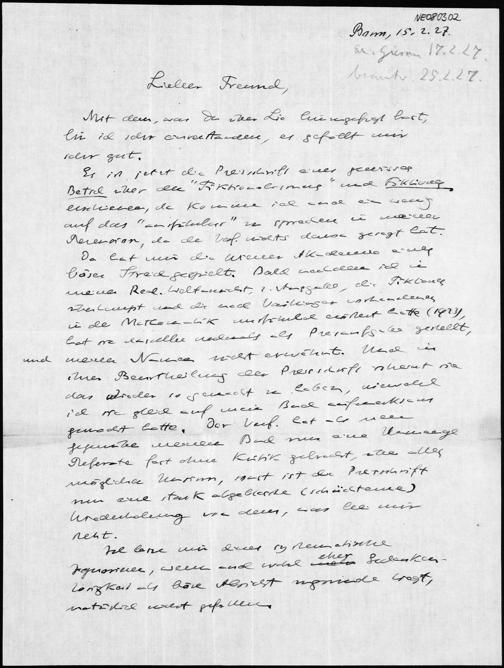 NE080302
Bonn, 15.2.27.
17.2.27.
beantw. 25.2.27.
Lieber Freund,
Mit dem, was Du über Lie hinzugefügt hast,
bin ich sehr einverstanden, es gefällt mir
sehr gut.
Es ist jetzt die Preisschrift eines gewissen
Betsch über den "Fiktionalismus" und
erschienen, da komme ich auch ein wenig
auf das zu sprechen in meiner
Rezension, da der Verf. nichts davon gesagt hat.
Da hat mir die Wiener Akademie einen
bösen Streich gespielt. Bald nachdem ich in
meiner 2. Ausgabe, die
überhaupt und die nach Vaihinger vorhandenen
in der Mathematik ausführlich erörtert hatte (1923),
hat sie dasselbe nochmals als Preisaufgabe gestellt,
und meinen Namen nicht erwähnt. Und in
ihrer Beurtheilung der Preisschrift scheint sie
das wieder so gemacht zu haben, wiewohl
ich sie gleich auf mein Buch aufmerksam
gemacht hatte. Der Verf. hat als neu
gegenüber meinem Buch nur eine Unmenge
Referate fast ohne Kritik gebracht, über allen
möglichen Unsinn, sonst ist die Preisschrift
nur eine stark abgeblasste (schüchterne)
Wiederholung von dem, was bei mir
steht.
Ich lasse mir dieses systematische
Ignorieren, wenn auch wohl eher Gedanken-
losigkeit als böse Absicht zugrunde liegt,
natürlich nicht gefallen.